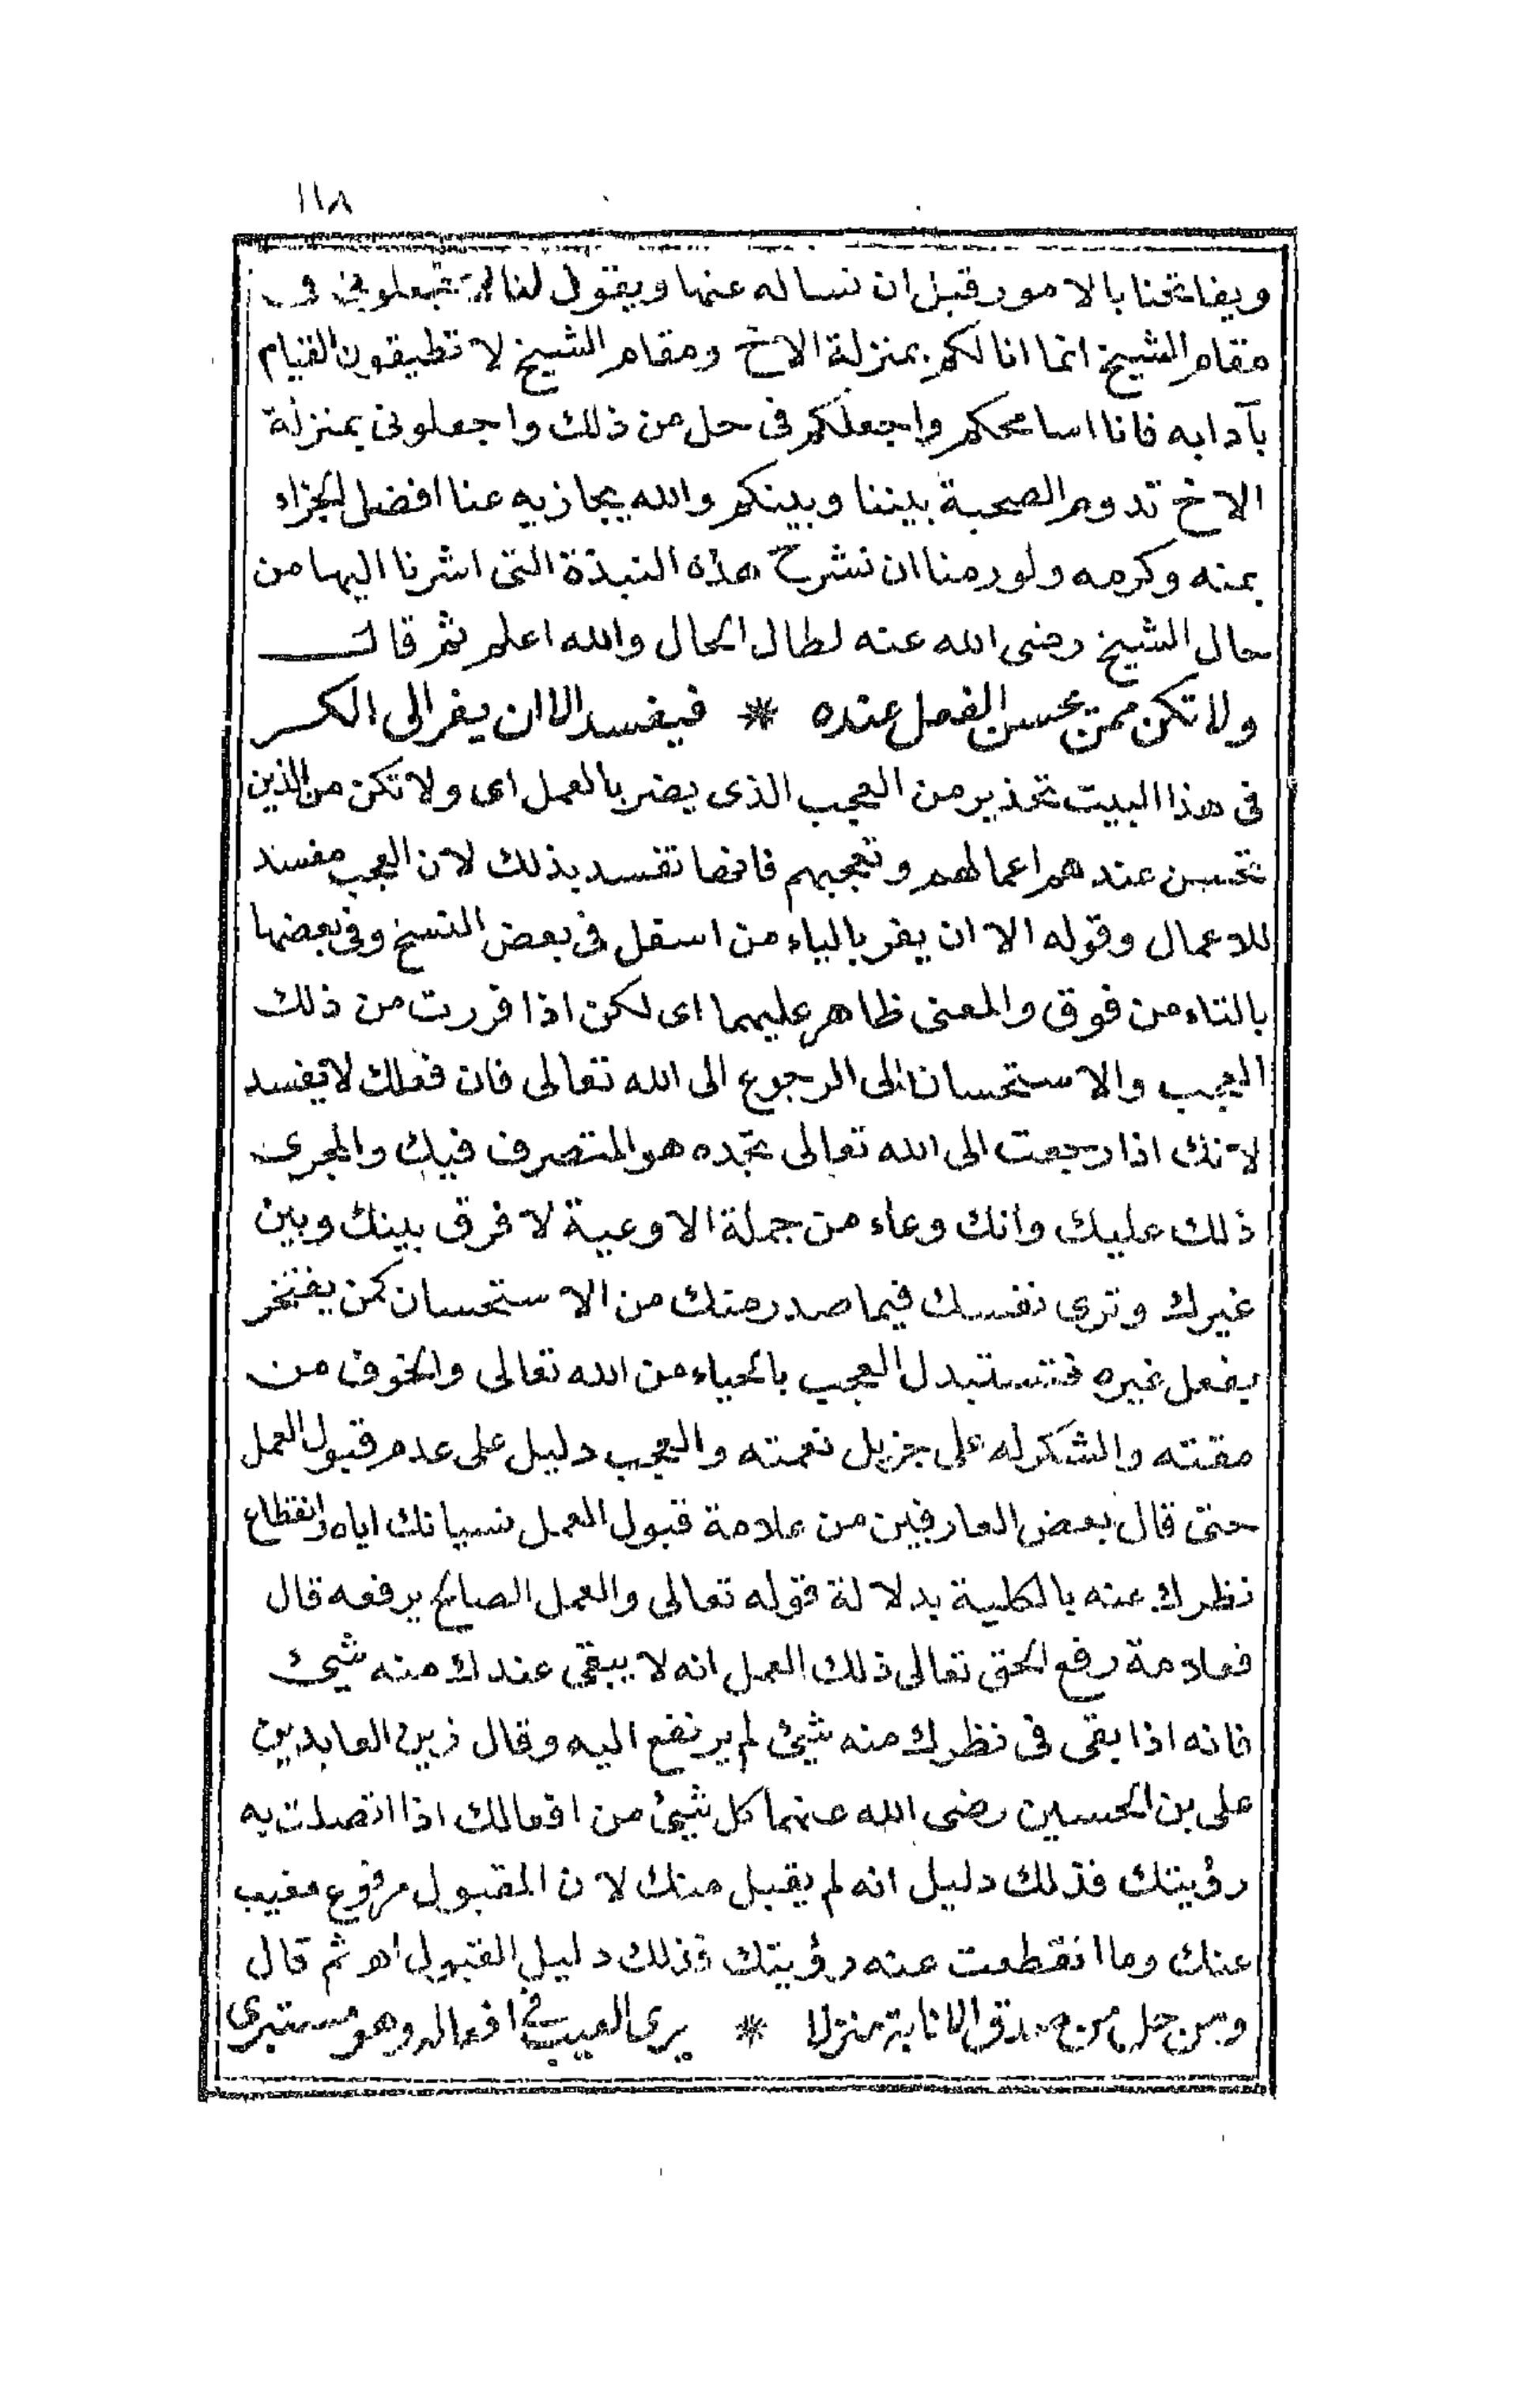 ١١٨
ويفاتحنا بالامور قبل ان نساله عنها ويقول لنا لا تجعلوني في
مقام الشيخ انما انا لكم بمنزلة الاخ ومقام الشيخ لا تطيقون القيام
بآدابه فانا اسامحكم واجعلكم فى حل من ذلك واجعلونى بمنزلة
الاخ تدوم الصحبة بيننا وبينكم والله يجازيه عنا افضل الجزاء
بمنه وكرمه ولورمنا ان نشرح هذه النبذة التى اشرنا اليها من
حال الشيخ رضى الله عنه لطال الحال والله اعلم ثم قال
ولا تكن ممن يحسن الفعل عنده * فيفسد الا ان يفر الى الكسر
فى هذا البيت تحذير من العجب الذى يضر بالعمل اى ولا تكن من الذين
تحسن عندهم اعمالهم وتعجبهم فانها تفسد بذلك لان العجب مفسد
للاعمال وقوله الا ان يفر بالياء من اسفل فى بعض النسخ وفى بعضها
بالتاء من فوق والمعنى ظاهر عليهما اى لكن اذا فررت من ذلك
العجب والاستحسان الى الرجوع الى الله تعالى فان فعلك لا يفسد
لانك اذا رجعت الى الله تعالى تجده هو المتصرف فيك والمجرى
ذلك عليك وانك وعاء من جملة الاوعية لا فرق بينك وبين
غيرك وترى نفسك فيما صدر منك من الاستحسان كمن يفتخر
بفعل غيره فتستبدل العجب بالحياء من الله تعالى والخوف من
مقته والشكر له على جزيل نعمته والعجب دليل على عدم قبول العمل
حتى قال بعض العارفين من علامة قبول العمل نسيانك اياه وانقطاع
نظرك عنه بالكلية بدلالة قوله تعالى والعمل الصالح يرفعه قال
فعلامة رفع الحق تعالى ذلك العمل انه لا يبقى عندك منه شيئ
فانه اذا بقى فى نظرك منه شيئ لم يرتفع اليه وقال زين العابدين
على بن الحسين رضى الله عنهما كل شيئ من افعالك اذا اتصلت به
رؤيتك فذلك دليل انه لم يقبل منك لان المقبول مرفوع مغيب
عنك وما انقطعت عنه رؤيتك فذلك دليل القبول اهـ ثم قال
ومن حل من صدق الانابة منزلا * يرى العيب فى افعاله وهو مستبرى